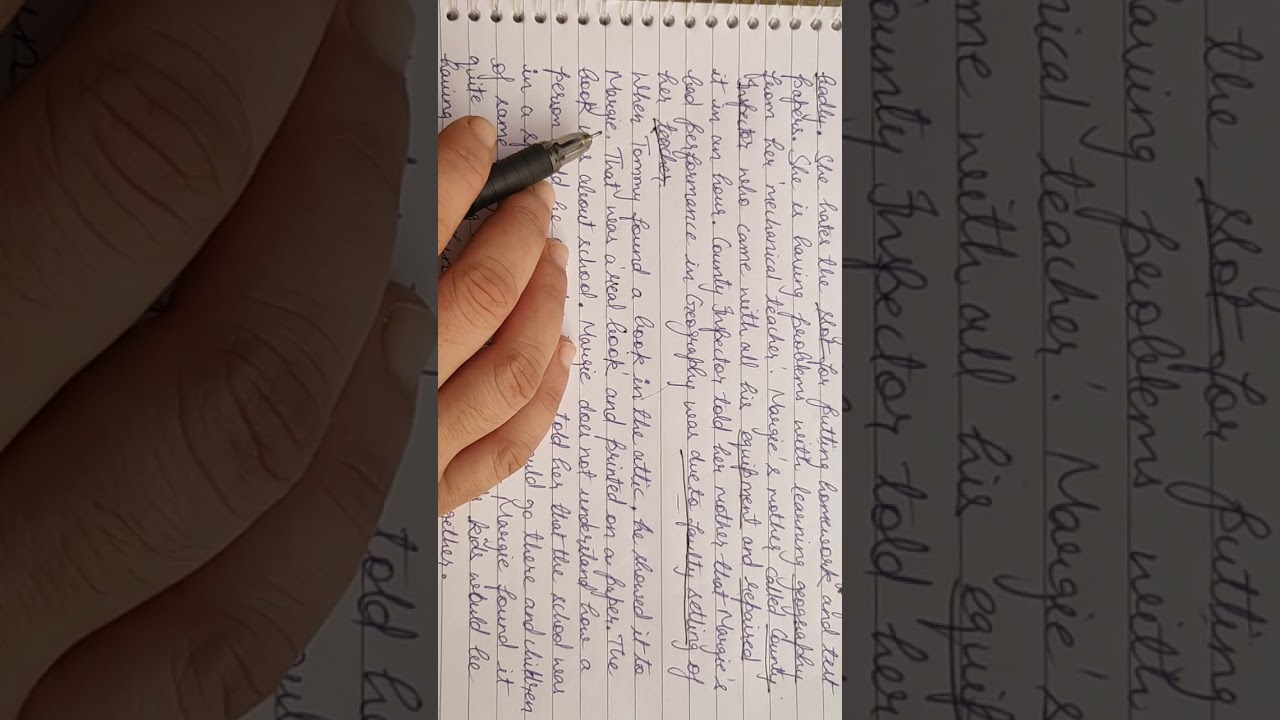 badly. She hates the slot for putting homework and test
papers. She is having problems with learning geography
from her 'mechanical teacher'. Margie's mother called County
Inspector who came with all his equipment and repaired
it in an hour. County Inspector told her mother that Margie's
bad performance in Geography was due to faulty setting of
her teacher.
When Tommy found a book in the attic, he showed it to
Margie. That was a 'real book' and printed on a paper. The
book was about school. Margie does not understand how a
person told her that the school was
in a go there and children
of same Margie found it
quite kids would be
having together.